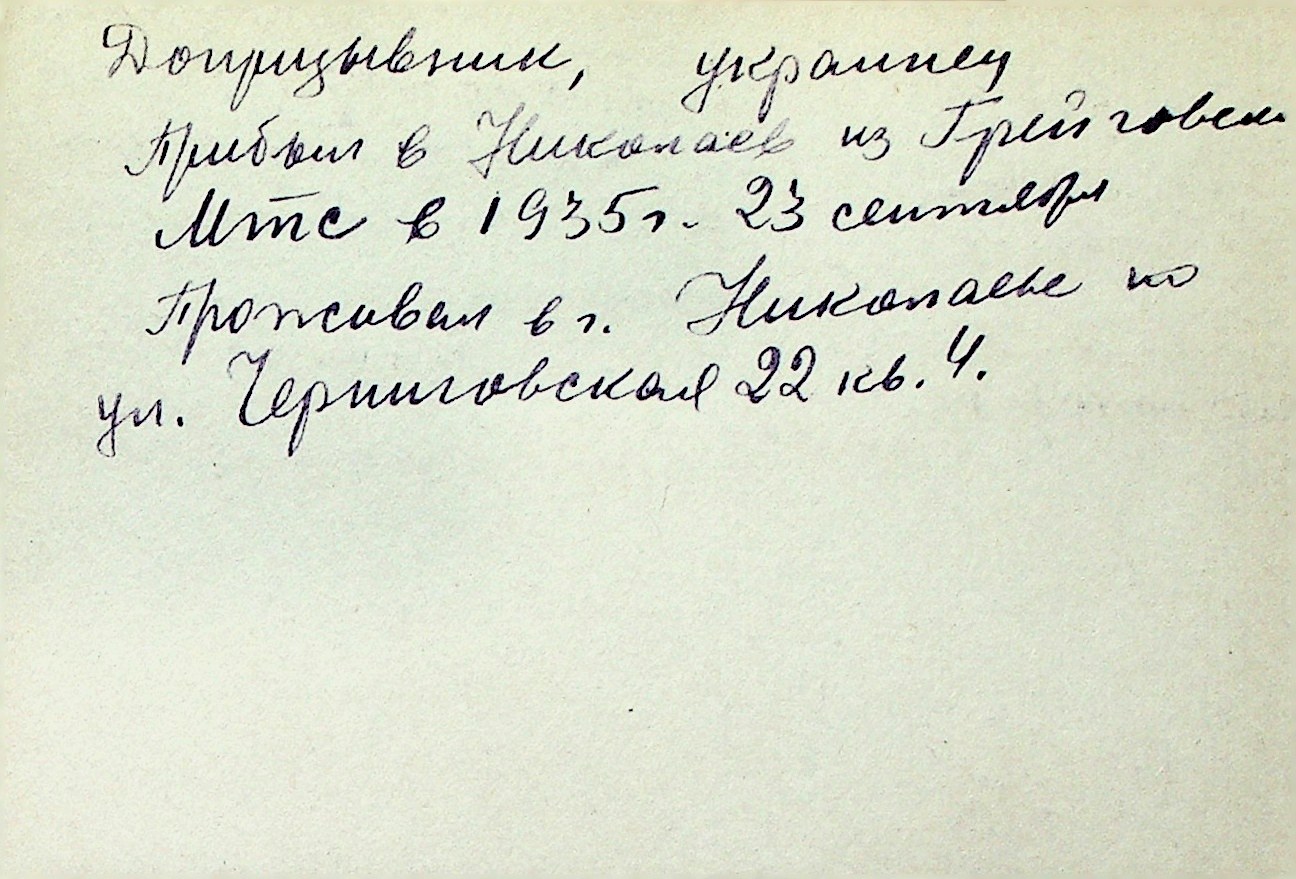 Допризывник, украинец
Прибыл в Николаев из Грейговск.
МТС в 1935г. 23 сентября
Проживал в г. Николаеве по
ул. Черниговская 22 кв. 4.